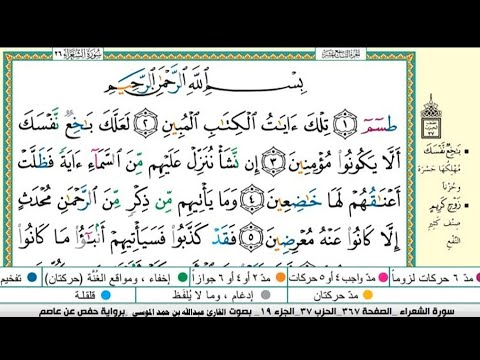 سُورَةُ الشُّعَرَاءِ ٢٦
الجزء التاسع عشر
بِسْمِ اللَّهِ الرَّحْمَٰنِ الرَّحِيمِ
طسٓمٓ ١ تِلْكَ ءَايَٰتُ الْكِتَٰبِ الْمُبِينِ ٢ لَعَلَّكَ بَٰخِعٌ نَّفْسَكَ
أَلَّا يَكُونُوا۟ مُؤْمِنِينَ ٣ إِن نَّشَأْ نُنَزِّلْ عَلَيْهِم مِّنَ السَّمَآءِ ءَايَةً فَظَلَّتْ
أَعْنَٰقُهُمْ لَهَا خَٰضِعِينَ ٤ وَمَا يَأْتِيهِم مِّن ذِكْرٍ مِّنَ الرَّحْمَٰنِ مُحْدَثٍ
إِلَّا كَانُوا۟ عَنْهُ مُعْرِضِينَ ٥ فَقَدْ كَذَّبُوا۟ فَسَيَأْتِيهِمْ أَنۢبَٰٓؤُا۟ مَا كَانُوا۟
بَٰخِعٌ نَّفْسَكَ
مُهْلِكُهَا حَسْرَةً
وَحُزْنًا
زَوْجٍ كَرِيمٍ
صِنْفٍ كَثِيرِ
النَّفْعِ
مدّ ٦ حركات لزوماً مدّ ٢ أو ٤ أو ٦ جوازاً إخفاء، ومواقع الغُنَّة (حركتان) تفخيم
مدّ واجب ٤ أو ٥ حركات مدّ حركتان إدغام، وما لا يُلفَظ قلقلة
سورة الشعراء _الصفحة ٣٦٧_ الحزب ٣٧_ الجزء ١٩_ بصوت القارئ عبدالله بن حمد الموسى _برواية حفص عن عاصم